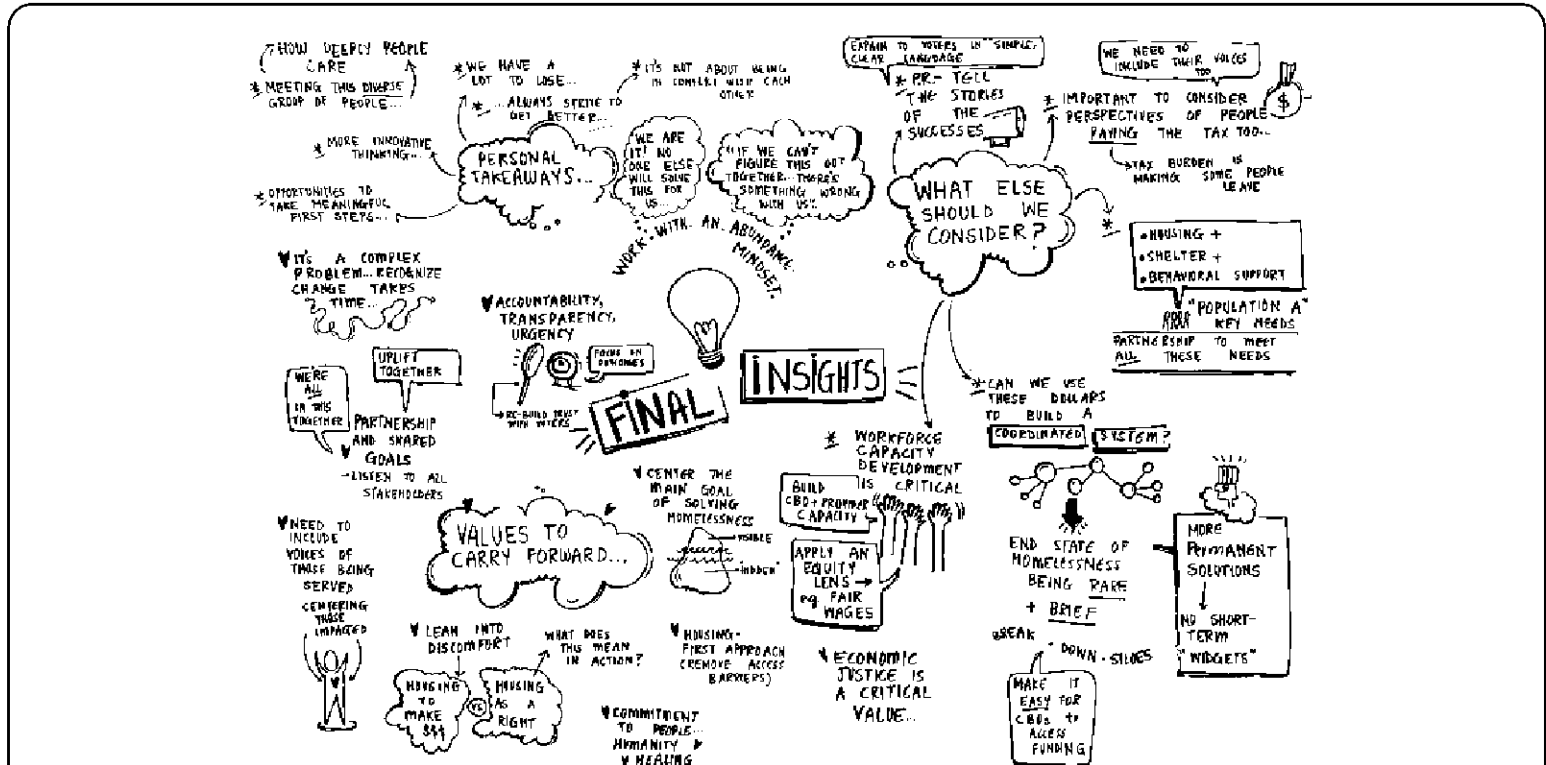 HOW DEEPLY PEOPLE
CARE
* MEETING THIS DIVERSE
GROUP OF PEOPLE...
* WE HAVE A
LOT TO LOSE...
* ... ALWAYS STRIVE TO
GET BETTER...
* IT'S NOT ABOUT BEING
IN CONFLICT WITH EACH
OTHER
* MORE INNOVATIVE
THINKING...
* OPPORTUNITIES TO
TAKE MEANINGFUL
FIRST STEPS...
PERSONAL
TAKEAWAYS...
WE ARE
IT! NO
ONE ELSE
WILL SOLVE
THIS FOR
US...
"IF WE CAN'T
FIGURE THIS OUT
TOGETHER... THERE'S
SOMETHING WRONG
WITH US".
WORK WITH AN ABUNDANCE
MINDSET.
EXPLAIN TO VOTERS IN SIMPLE,
CLEAR LANGUAGE
* PR - TELL
THE STORIES
OF THE
SUCCESSES
WE NEED TO
INCLUDE THEIR VOICES
TOO
* IMPORTANT TO CONSIDER
PERSPECTIVES OF PEOPLE
PAYING THE TAX TOO...
$
TAX BURDEN IS
MAKING SOME PEOPLE
LEAVE
WHAT ELSE
SHOULD WE
CONSIDER?
*
• HOUSING +
• SHELTER +
• BEHAVIORAL SUPPORT
"POPULATION A"
KEY NEEDS
PARTNERSHIP TO MEET
ALL THESE NEEDS
IT'S A COMPLEX
PROBLEM... RECOGNIZE
CHANGE TAKES
TIME...
ACCOUNTABILITY,
TRANSPARENCY,
URGENCY
FOCUS ON
OUTCOMES
RE-BUILD TRUST
WITH VOTERS
FINAL
INSIGHTS
WE'RE
ALL
IN THIS
TOGETHER
UPLIFT
TOGETHER
PARTNERSHIP
AND SHARED
GOALS
- LISTEN TO ALL
STAKEHOLDERS
* CAN WE USE
THESE DOLLARS
TO BUILD A
COORDINATED SYSTEM?
* WORKFORCE
CAPACITY
DEVELOPMENT
IS CRITICAL
BUILD
CBO + PROVIDER
CAPACITY
APPLY AN
EQUITY
LENS
eg. FAIR
WAGES
END STATE OF
HOMELESSNESS
BEING RARE
+ BRIEF
BREAK
DOWN SILOES
MAKE IT
EASY FOR
CBOs to
ACCESS
FUNDING
MORE
PERMANENT
SOLUTIONS
NO SHORT-
TERM
"WIDGETS"
CENTER THE
MAIN GOAL
OF SOLVING
HOMELESSNESS
VISIBLE
"HIDDEN"
VALUES TO
CARRY FORWARD...
NEED TO
INCLUDE
VOICES OF
THOSE BEING
SERVED
CENTERING
THOSE
IMPACTED
LEAN INTO
DISCOMFORT
WHAT DOES
THIS MEAN
IN ACTION?
HOUSING
TO
MAKE
$$$
VS
HOUSING
AS A
RIGHT
HOUSING-
FIRST APPROACH
(REMOVE ACCESS
BARRIERS)
ECONOMIC
JUSTICE IS
A CRITICAL
VALUE...
COMMITMENT
TO PEOPLE...
HUMANITY
HEALING